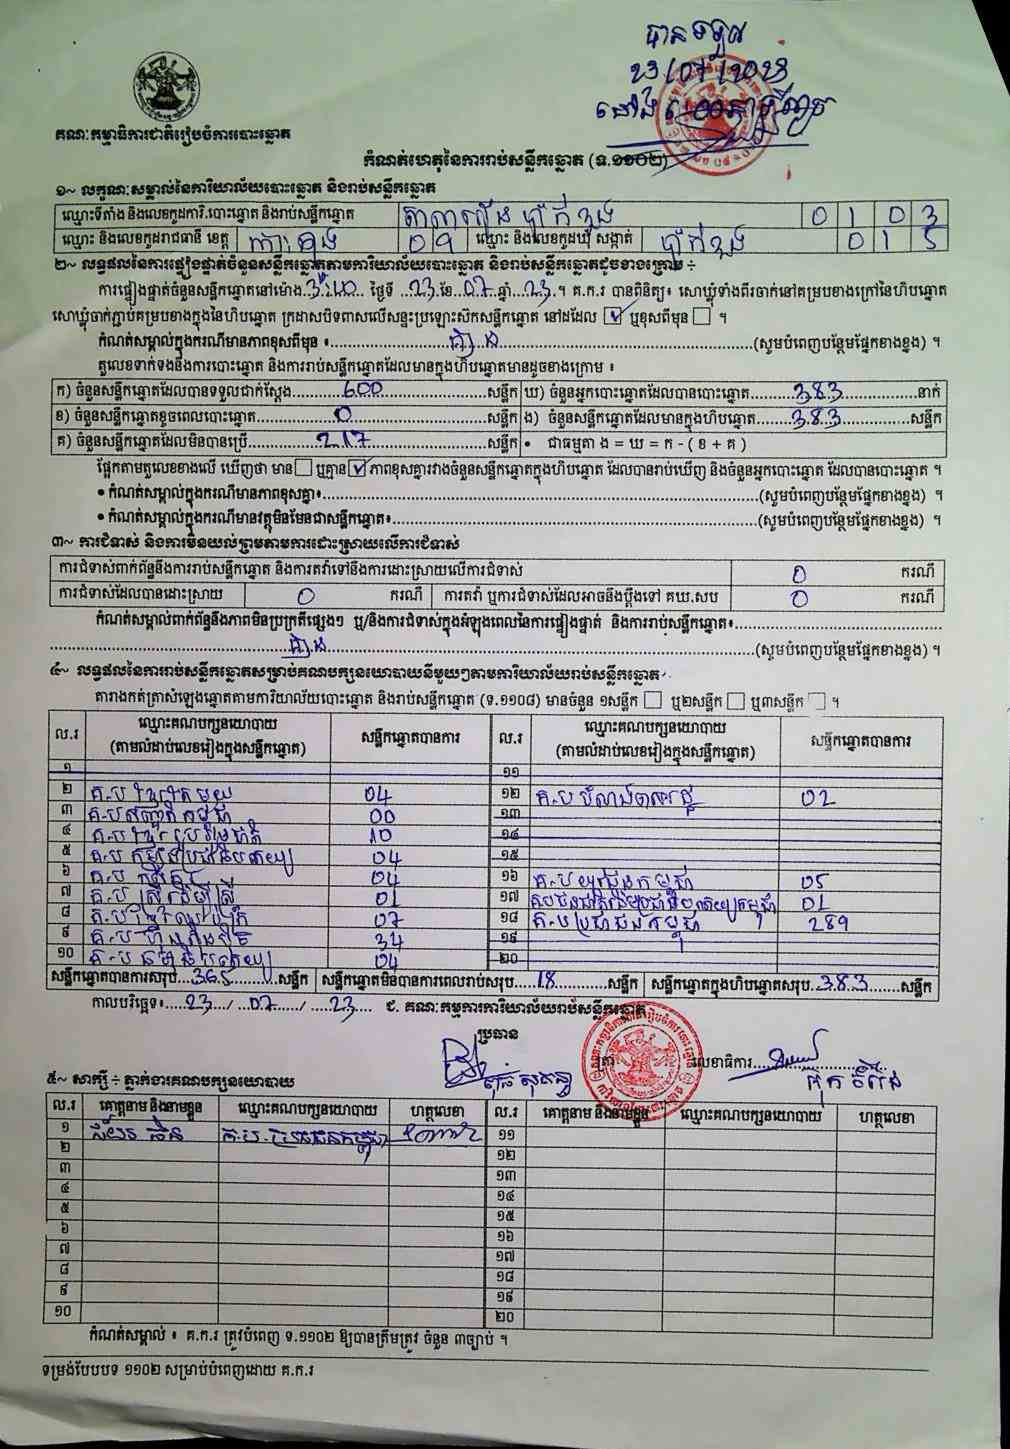 បានទទួល
23/07/2023
គណៈកម្មាធិការជាតិរៀបចំការបោះឆ្នោត
កំណត់ហេតុនៃការរាប់សន្លឹកឆ្នោត (ទ.១១០២)
១~ លក្ខណៈសម្គាល់នៃការិយាល័យបោះឆ្នោត និងរាប់សន្លឹកឆ្នោត
ឈ្មោះទីតាំង និងលេខកូដការិ.បោះឆ្នោត និងរាប់សន្លឹកឆ្នោត 0 1 0 3
ឈ្មោះ និងលេខកូដរាជធានី ខេត្ត កោះកុង 09 ឈ្មោះ និងលេខកូដឃុំ សង្កាត់ ប៉ាក់ខ្លង 0 1 5
២~ លទ្ធផលនៃការផ្ទៀងផ្ទាត់ចំនួនសន្លឹកឆ្នោតតាមការិយាល័យបោះឆ្នោត និងរាប់សន្លឹកឆ្នោតដូចខាងក្រោម ÷
ការផ្ទៀងផ្ទាត់ចំនួនសន្លឹកឆ្នោតនៅម៉ោង 3:40 ថ្ងៃទី 23 ខែ 07 ឆ្នាំ 23 ។ គ.ក.រ បានពិនិត្យ៖ សោឃ្លុំទាំងពីរចាក់នៅគម្របខាងក្រៅនៃហិបឆ្នោត
សោឃ្លុំចាក់ភ្ជាប់គម្របខាងក្នុងនៃហិបឆ្នោត ក្រដាសបិទពាសលើសន្ទះប្រឡោះស៊កសន្លឹកឆ្នោត នៅដដែល ☑ ឬខុសពីមុន ☐ ។
កំណត់សម្គាល់ក្នុងករណីមានភាពខុសពីមុន ៖ គ្មាន (សូមបំពេញបន្ថែមផ្នែកខាងខ្នង) ។
តួលេខទាក់ទងនឹងការបោះឆ្នោត និងការរាប់សន្លឹកឆ្នោតដែលមានក្នុងហិបឆ្នោតមានដូចខាងក្រោម ៖
ក) ចំនួនសន្លឹកឆ្នោតដែលបានទទួលជាក់ស្តែង 600 សន្លឹក ឃ) ចំនួនអ្នកបោះឆ្នោតដែលបានបោះឆ្នោត 383 នាក់
ខ) ចំនួនសន្លឹកឆ្នោតខូចពេលបោះឆ្នោត 0 សន្លឹក ង) ចំនួនសន្លឹកឆ្នោតដែលមានក្នុងហិបឆ្នោត 383 សន្លឹក
គ) ចំនួនសន្លឹកឆ្នោតដែលមិនបានប្រើ 217 សន្លឹក • ជាធម្មតា ង = ឃ = ក - ( ខ + គ )
ផ្អែកតាមតួលេខខាងលើ ឃើញថា មាន ☐ ឬគ្មាន ☑ ភាពខុសគ្នារវាងចំនួនសន្លឹកឆ្នោតក្នុងហិបឆ្នោត ដែលបានរាប់ឃើញ និងចំនួនអ្នកបោះឆ្នោត ដែលបានបោះឆ្នោត ។
• កំណត់សម្គាល់ក្នុងករណីមានភាពខុសគ្នា៖ (សូមបំពេញបន្ថែមផ្នែកខាងខ្នង) ។
• កំណត់សម្គាល់ក្នុងករណីមានវត្ថុមិនមែនជាសន្លឹកឆ្នោត៖ (សូមបំពេញបន្ថែមផ្នែកខាងខ្នង) ។
៣~ ការជំទាស់ និងការមិនយល់ព្រមតាមការដោះស្រាយលើការជំទាស់
ការជំទាស់ពាក់ព័ន្ធនឹងការរាប់សន្លឹកឆ្នោត និងការតវ៉ាទៅនឹងការដោះស្រាយលើការជំទាស់ 0 ករណី
ការជំទាស់ដែលបានដោះស្រាយ 0 ករណី ការតវ៉ា ឬការជំទាស់ដែលអាចនឹងប្តឹងទៅ គឃ.សប 0 ករណី
កំណត់សម្គាល់ពាក់ព័ន្ធនឹងភាពមិនប្រក្រតីផ្សេងៗ ឬ/និងការជំទាស់ក្នុងអំឡុងពេលនៃការផ្ទៀងផ្ទាត់ និងការរាប់សន្លឹកឆ្នោត៖
គ្មាន (សូមបំពេញបន្ថែមផ្នែកខាងខ្នង) ។
៤~ លទ្ធផលនៃការរាប់សន្លឹកឆ្នោតសម្រាប់គណបក្សនយោបាយនីមួយៗតាមការិយាល័យរាប់សន្លឹកឆ្នោត
តារាងកត់ត្រាសំឡេងឆ្នោតតាមការិយាល័យបោះឆ្នោត និងរាប់សន្លឹកឆ្នោត (ទ.១១០៨) មានចំនួន ១សន្លឹក ☐ ឬ២សន្លឹក ☐ ឬ៣សន្លឹក ☐ ។
ល.រ ឈ្មោះគណបក្សនយោបាយ (តាមលំដាប់លេខរៀងក្នុងសន្លឹកឆ្នោត) សន្លឹកឆ្នោតបានការ ល.រ ឈ្មោះគណបក្សនយោបាយ (តាមលំដាប់លេខរៀងក្នុងសន្លឹកឆ្នោត) សន្លឹកឆ្នោតបានការ
១ ១១
២ គ.ប ខ្មែរតែមួយ 04 ១២ 02
៣ គ.ប សញ្ជាតិកម្ពុជា 00 ១៣
៤ គ.ប ខ្មែររួបរួមជាតិ 10 ១៤
៥ គ.ប កម្ពុជាប្រជាធិបតេយ្យ 04 ១៥
៦ គ.ប កសិករ 04 ១៦ គ.ប យុវជនកម្ពុជា 05
៧ គ.ប ស្ត្រីដើម្បីស្ត្រី 01 ១៧ 01
៨ 07 ១៨ គ.ប ប្រជាជនកម្ពុជា 289
៩ 34 ១៩
១០ គ.ប ធម្មាធិបតេយ្យ 04 ២០
សន្លឹកឆ្នោតបានការសរុប 365 សន្លឹក សន្លឹកឆ្នោតមិនបានការពេលរាប់សរុប 18 សន្លឹក សន្លឹកឆ្នោតក្នុងហិបឆ្នោតសរុប 383 សន្លឹក
កាលបរិច្ឆេទ៖ 23 / 07 / 23 ជ. គណៈកម្មការការិយាល័យរាប់សន្លឹកឆ្នោត
ប្រធាន
លេខាធិការ
៥~ សាក្សី ÷ ភ្នាក់ងារគណបក្សនយោបាយ
ល.រ គោត្តនាម និងនាមខ្លួន ឈ្មោះគណបក្សនយោបាយ ហត្ថលេខា ល.រ គោត្តនាម និងនាមខ្លួន ឈ្មោះគណបក្សនយោបាយ ហត្ថលេខា
១ គ.ប. ប្រជាជនកម្ពុជា ១១
២ ១២
៣ ១៣
៤ ១៤
៥ ១៥
៦ ១៦
៧ ១៧
៨ ១៨
៩ ១៩
១០ ២០
កំណត់សម្គាល់ ៖ គ.ក.រ ត្រូវបំពេញ ទ.១១០២ ឱ្យបានត្រឹមត្រូវ ចំនួន ៣ច្បាប់ ។
ទម្រង់បែបបទ ១១០២ សម្រាប់បំពេញដោយ គ.ក.រ